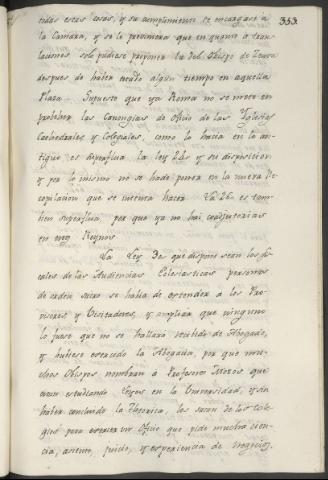 353.
todas estas cosas, y su cumplimiento se encargara à
la Camara, y se le previniera que en quanto à trans-
laciones solo pudiese proponer la del Obispo de
despues de haver estado algun tiempo en aquella
Plaza. Supuesto que ya Roma no se mete en
proveher las Canongias de Oficio de las Yglesias
Cathedrales y Colegiales, como lo hacia en lo an-
tiguo es superflua la ley 24 y su disposicion
y por lo mismo no se hade poner en la nueva Re-
copilacion que se intenta hacer. La 26 es tam-
bien superflua, por que ya no hai coadjutorias
en nros Reynos.
La Ley 30 que dispone sean los fis-
cales de las Audiencias Eclesiasticas personas
de orden sacro se havia de estender à los Pro-
visores y Visitadores, y ampliar que ninguno
lo fuese que no se hallara recibido de Abogado,
y hubiese exercido la Abogacia, por que mu-
chos Obispos nombran à Profesores Mozos que
estan estudiando Leyes en la Universidad, y sin
haber concluido la Theorica, los sacan de los Cole-
gios para exercer un Oficio que pide mucha cien-
cia, asiento, juicio, y experiencia de negocios.